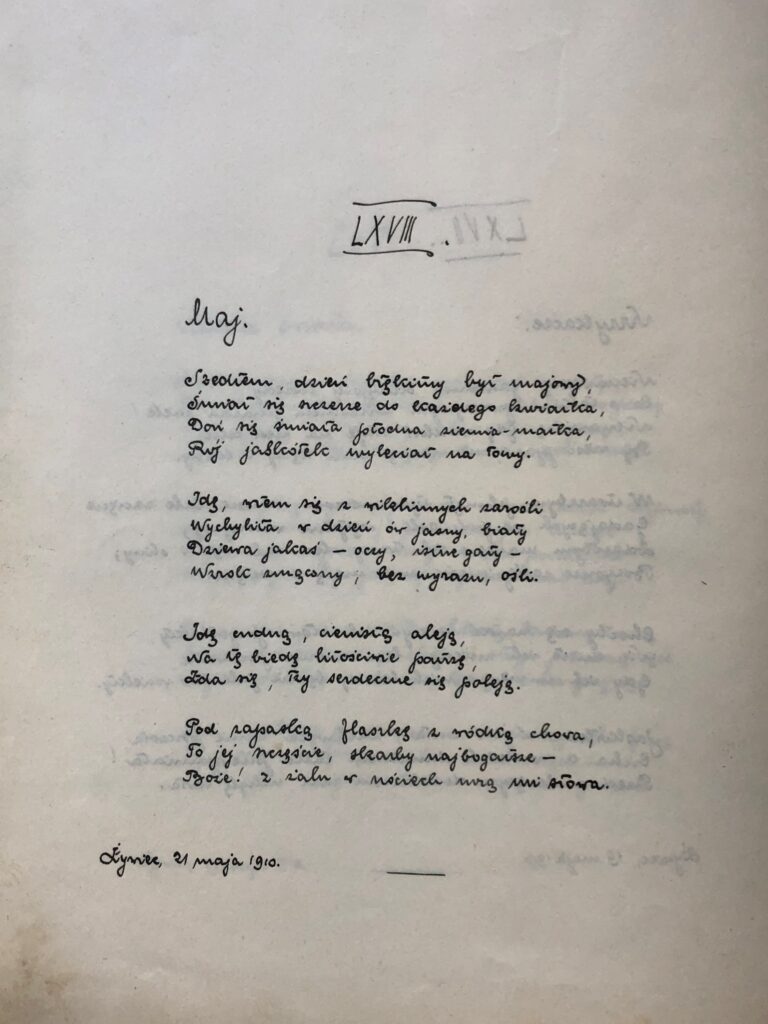 LXVIII.
Maj.
Szedłem, dzień błękitny był majowy,
Śmiał się szczerze do każdego kwiatka,
Doń się śmiała płodna ziemia-matka,
Rój jaskółek wyleciał na łowy.
Idę, wtem się z wiklinnych zarośli
Wychyliła w dzień ów jasny, biały
Dziewa jakaś – oczy, istne gały –
Wzrok zmącony, bez wyrazu, ośli.
Idę cudną, cienistą aleją,
Na tę biedę litościwie patrzę,
Zda się, łzy serdeczne się poleją.
Pod zapaską flaszkę z wódką chowa,
To jej szczęście, skarby najbogatsze –
Boże! z żalu w uściech mrą mi słowa.
Żywiec, 21 maja 1910.